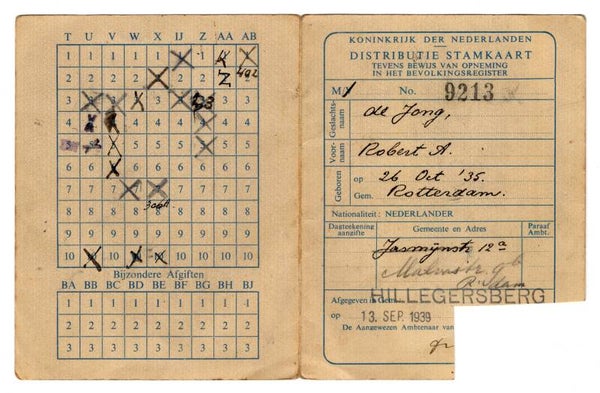 T U V W X IJ Z AA AB
1 1 1 1 1 1 1
2 2 2 2 2 2 Z 492
3 3
4 4 4 4 4
5 5 5 5 5
6 6 6 6 6 6 6 6
7 7 7 7 7 7 7
8 8 8 8 8 8 8 8
9 9 9 9 9 9 9 9 9
10 10 10 10 10 10
Bijzondere Afgiften
BA BB BC BD BE BF BG BH BJ
1 1 1 1 1 1 1 1 1
2 2 2 2 2 2 2 2 2
3 3 3 3 3 3 3 3 3
KONINKRIJK DER NEDERLANDEN
DISTRIBUTIE STAMKAART
TEVENS BEWIJS VAN OPNEMING
IN HET BEVOLKINGSREGISTER
M/1 No. 9213
Geslachtsnaam de Jong,
Voornaam Robert A.
Geboren op 26 Oct '35.
Gem. Rotterdam.
Nationaliteit: NEDERLANDER
Dagteekening aangifte Gemeente en Adres Paraaf Ambt.
Jasmijnstr 12a
R'dam
Afgegeven in Gem. HILLEGERSBERG
op 13. SEP. 1939
De Aangewezen Ambtenaar van